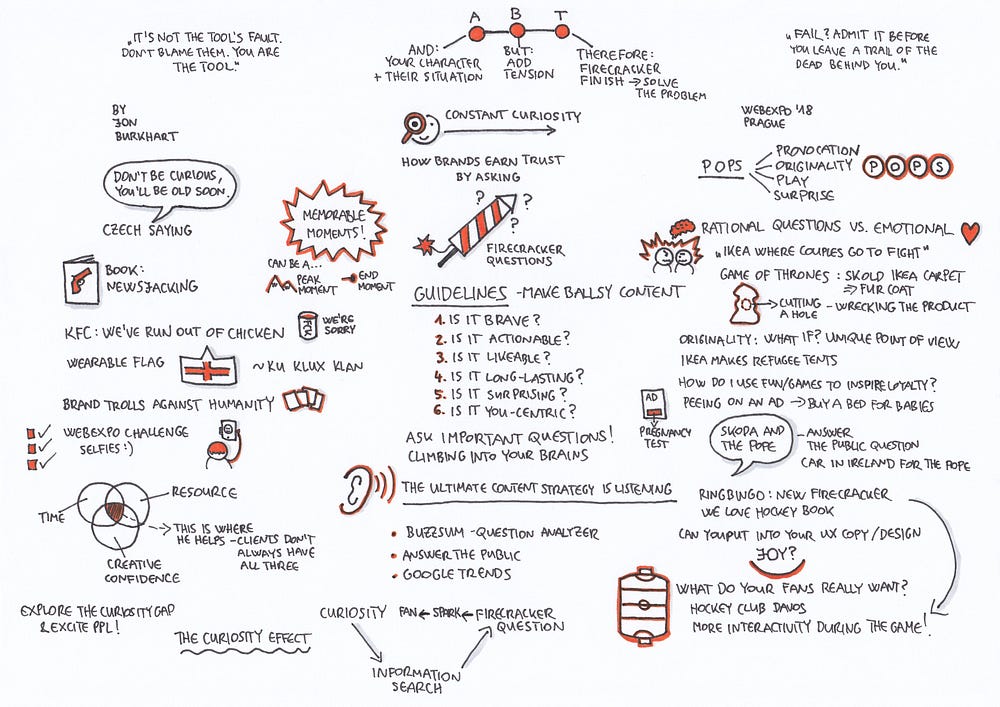 "IT'S NOT THE TOOL'S FAULT.
DON'T BLAME THEM. YOU ARE
THE TOOL."
A B T
AND:
YOUR CHARACTER
+ THEIR SITUATION
BUT:
ADD
TENSION
THEREFORE:
FIRECRACKER
FINISH → SOLVE
THE PROBLEM
"FAIL? ADMIT IT BEFORE
YOU LEAVE A TRAIL OF THE
DEAD BEHIND YOU."
BY
JON
BURKHART
CONSTANT CURIOSITY
HOW BRANDS EARN TRUST
BY ASKING
? ? ?
FIRECRACKER
QUESTIONS
WEBEXPO '18
PRAGUE
DON'T BE CURIOUS,
YOU'LL BE OLD SOON.
CZECH SAYING
MEMORABLE
MOMENTS!
CAN BE A...
PEAK
MOMENT
END
MOMENT
BOOK:
NEWSJACKING
POPS
PROVOCATION
ORIGINALITY
PLAY
SURPRISE
P O P S
RATIONAL QUESTIONS VS. EMOTIONAL
"IKEA WHERE COUPLES GO TO FIGHT"
GAME OF THRONES : SKOLD IKEA CARPET
⇒ FUR COAT
→ CUTTING
A HOLE
- WRECKING THE PRODUCT
KFC: WE'VE RUN OUT OF CHICKEN
FCK
WE'RE
SORRY
WEARABLE FLAG
~ KU KLUX KLAN
BRAND TROLLS AGAINST HUMANITY
WEBEXPO CHALLENGE
SELFIES :)
GUIDELINES - MAKE BALLSY CONTENT
1. IS IT BRAVE?
2. IS IT ACTIONABLE?
3. IS IT LIKEABLE?
4. IS IT LONG-LASTING?
5. IS IT SURPRISING?
6. IS IT YOU-CENTRIC?
ASK IMPORTANT QUESTIONS!
CLIMBING INTO YOUR BRAINS
ORIGINALITY: WHAT IF? UNIQUE POINT OF VIEW
IKEA MAKES REFUGEE TENTS
HOW DO I USE FUN/GAMES TO INSPIRE LOYALTY?
AD
PEEING ON AN AD → BUY A BED FOR BABIES
PREGNANCY
TEST
SKODA AND
THE POPE
- ANSWER
THE PUBLIC QUESTION
CAR IN IRELAND FOR THE POPE
TIME
RESOURCE
CREATIVE
CONFIDENCE
→ THIS IS WHERE
HE HELPS - CLIENTS DON'T
ALWAYS HAVE
ALL THREE
THE ULTIMATE CONTENT STRATEGY IS LISTENING
• BUZZSUM - QUESTION ANALYZER
• ANSWER THE PUBLIC
• GOOGLE TRENDS
RINGBINGO: NEW FIRECRACKER
WE LOVE HOCKEY BOOK
CAN YOU PUT INTO YOUR UX COPY/DESIGN
JOY?
WHAT DO YOUR FANS REALLY WANT?
HOCKEY CLUB DAVOS
MORE INTERACTIVITY DURING THE GAME!
EXPLORE THE CURIOSITY GAP
& EXCITE PPL!
THE CURIOSITY EFFECT
CURIOSITY FAN ← SPARK ← FIRECRACKER
QUESTION
INFORMATION
SEARCH